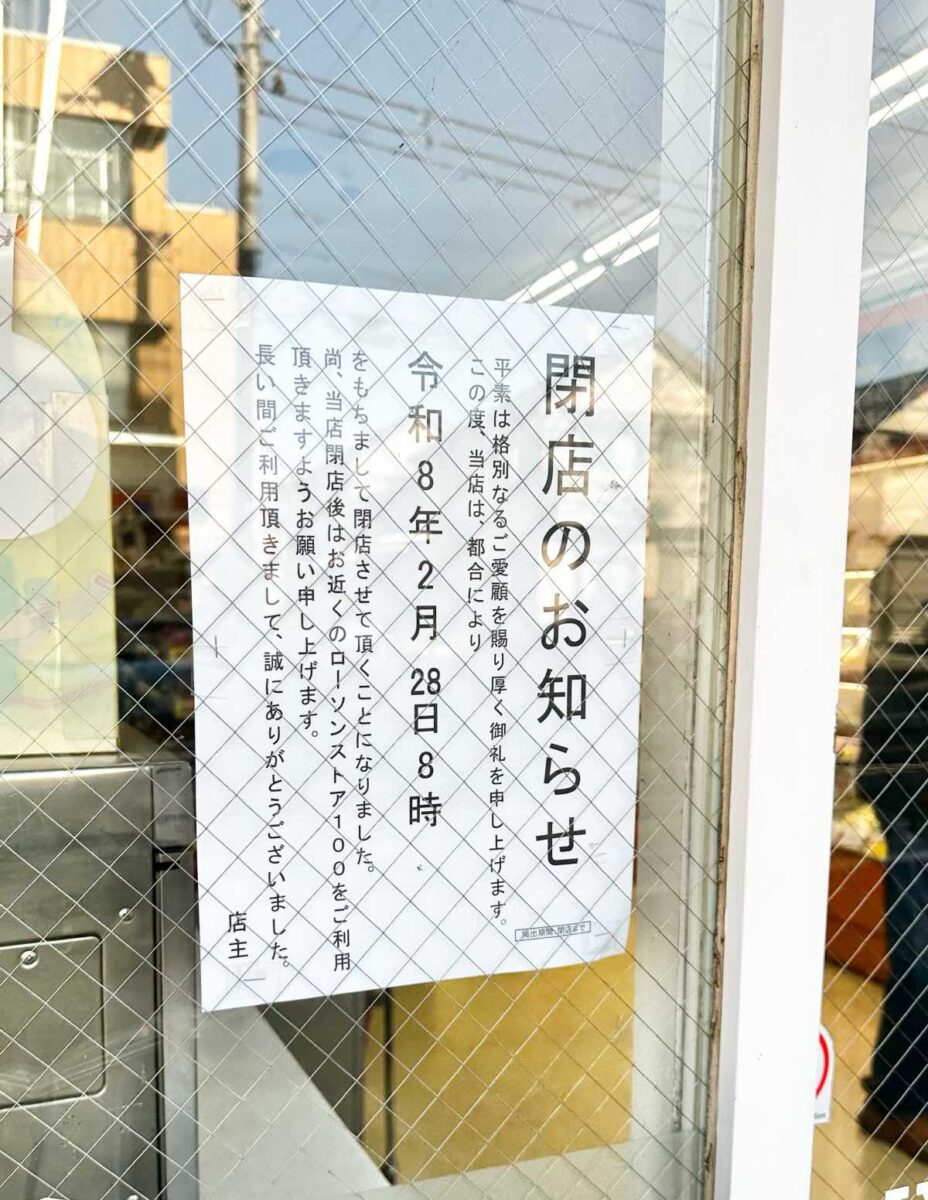 閉店のお知らせ
平素は格別なるご愛顧を賜り厚く御礼を申し上げます。
この度、当店は、都合により
令和8年2月28日8時
をもちまして閉店させて頂くことになりました。
尚、当店閉店後はお近くのローソンストア100をご利用
頂きますようお願い申し上げます。
長い間ご利用頂きまして、誠にありがとうございました。
店主
掲出期間:閉店まで